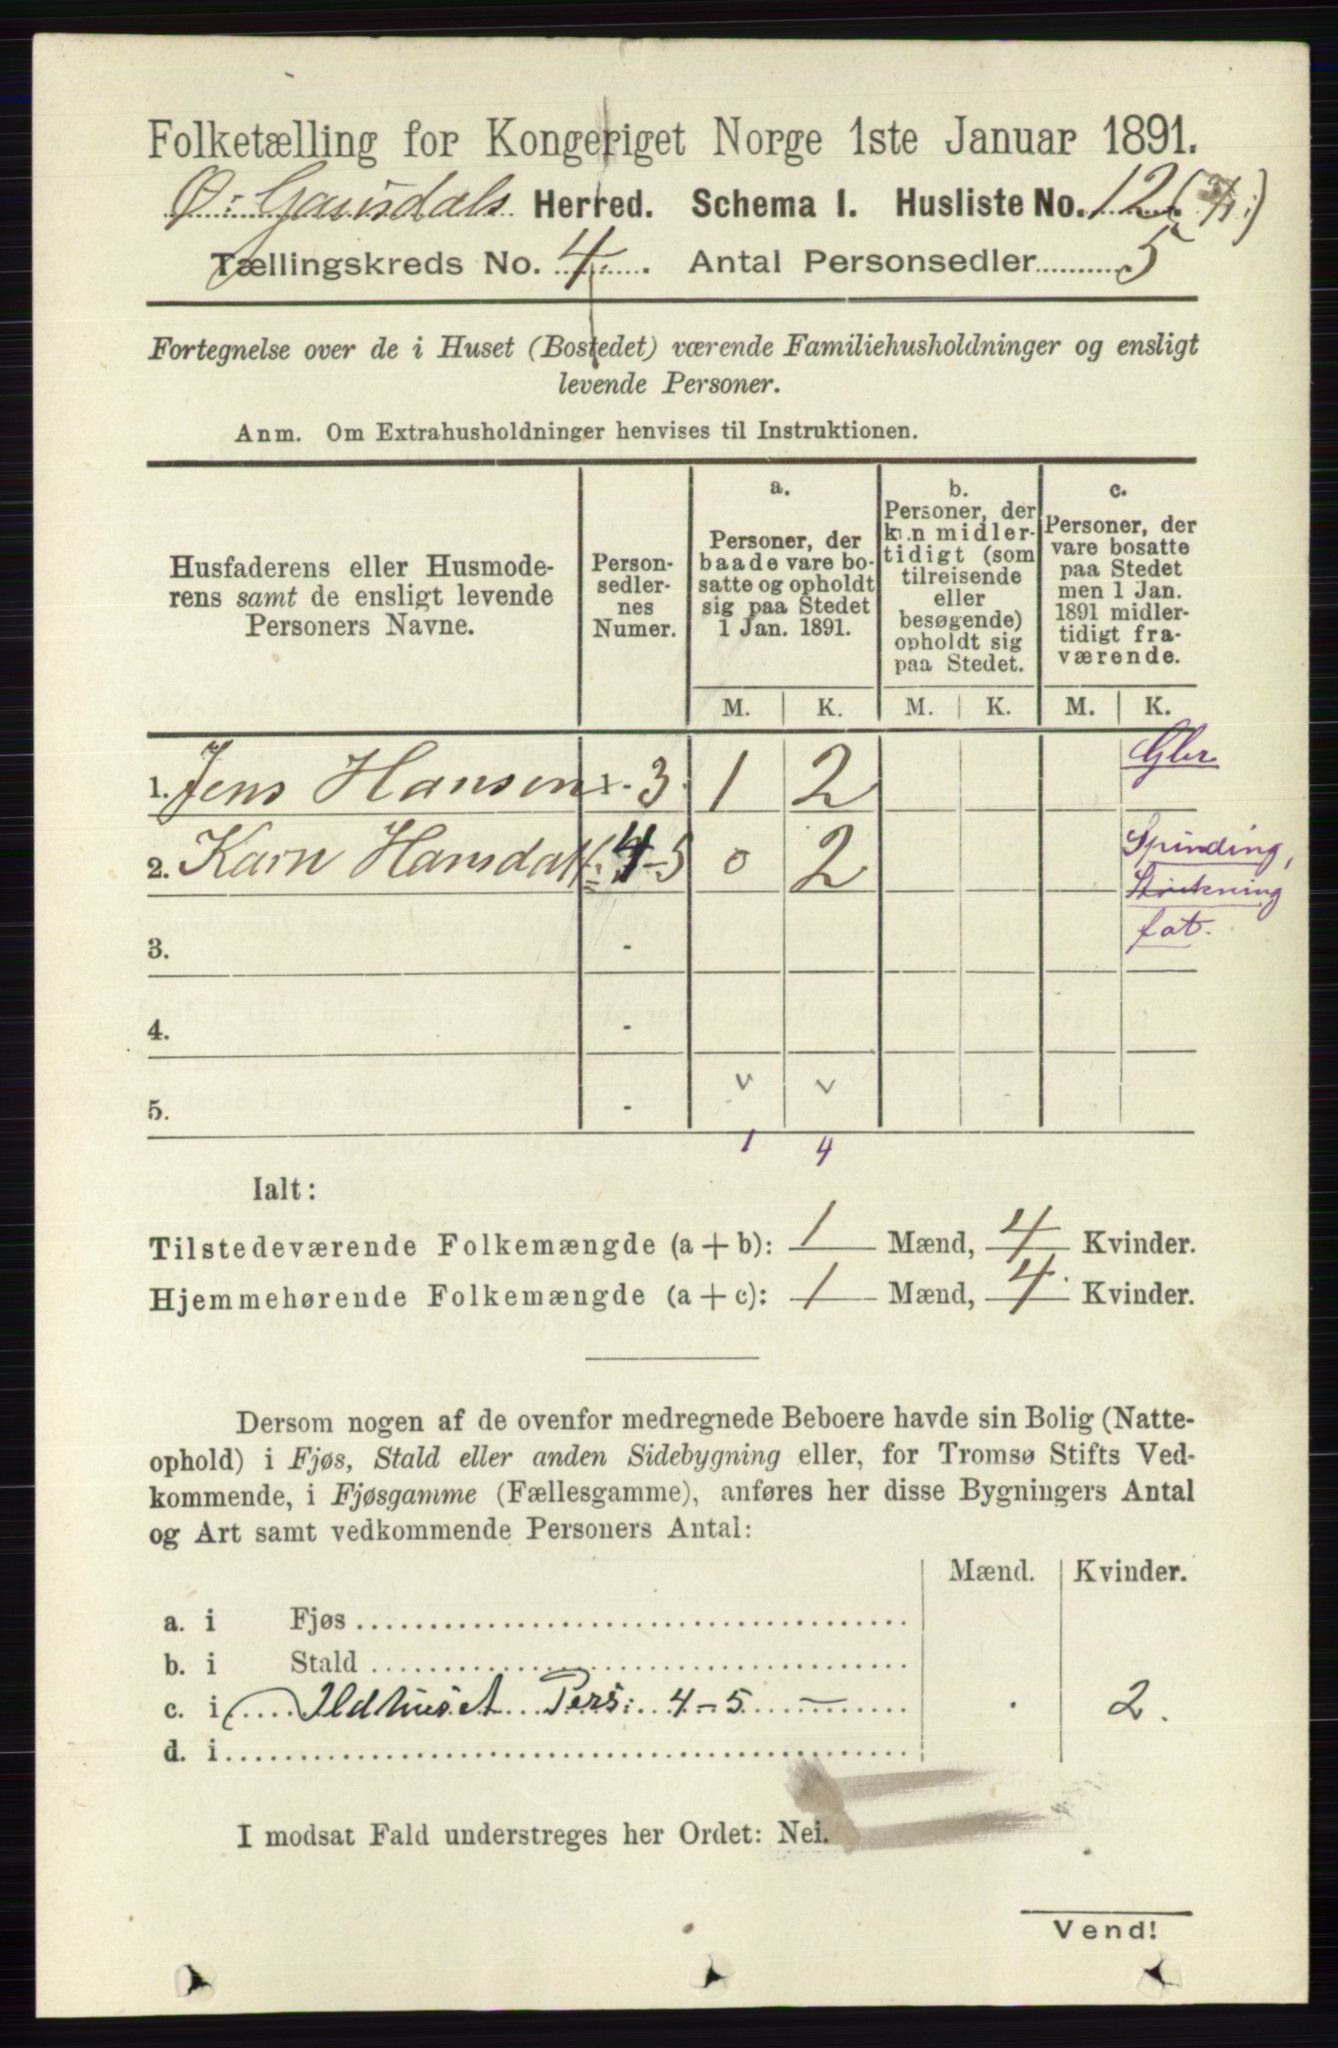 Folketælling for Kongeriget Norge 1ste Januar 1891.
Ø: Gausdals Herred. Schema I. Husliste No. 12
Tællingskreds No. 4. Antal Personsedler 5
Fortegnelse over de i Huset (Bostedet) værende Familiehusholdninger og ensligt
levende Personer.
Anm. Om Extrahusholdninger henvises til Instruktionen.
Husfaderens eller Husmode-
rens samt de ensligt levende
Personers Navne.
Person-
sedler-
nes
Numer.
a.
Personer, der
baade vare bo-
satte og opholdt
sig paa Stedet
1 Jan. 1891.
b.
Personer, der
kun midler-
tidigt (som
tilreisende
eller
besøgende)
opholdt sig
paa Stedet.
c.
Personer, der
vare bosatte
paa Stedet
men 1 Jan.
1891 midler-
tidigt fra-
værende.
M. K. M. K. M. K.
1. Jens Hansen 1-3 1 2
2. Karn Hansdatt: 4-5 0 2 Spinding,
Strikning
fat.
3. -
4. -
5. - v v
1 4
Ialt:
Tilstedeværende Folkemængde (a + b): 1 Mænd, 4 Kvinder.
Hjemmehørende Folkemængde (a + c): 1 Mænd, 4 Kvinder.
Dersom nogen af de ovenfor medregnede Beboere havde sin Bolig (Natte-
ophold) i Fjøs, Stald eller anden Sidebygning eller, for Tromsø Stifts Ved-
kommende, i Fjøsgamme (Fællesgamme), anføres her disse Bygningers Antal
og Art samt vedkommende Personers Antal:
Mænd. Kvinder.
a. i Fjøs
b. i Stald
c. i Ildhuset Pers: 4-5 — 2.
d. i
I modsat Fald understreges her Ordet: Nei.
Vend!